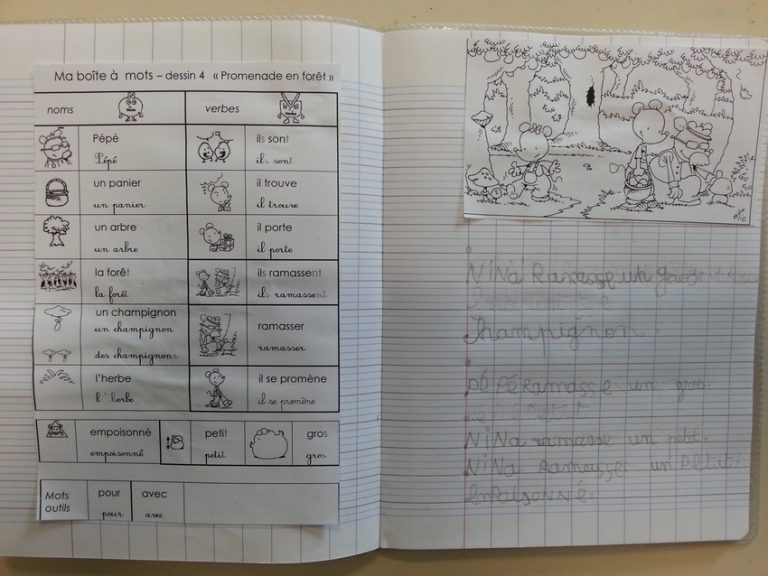 Ma boîte à mots – dessin 4 « Promenade en forêt »
noms verbes
Pépé ils sont
Pépé ils sont
un panier il trouve
un panier il trouve
un arbre il porte
un arbre il porte
la forêt ils ramassent
la forêt ils ramassent
un champignon
un champignon ramasser
des champignons ramasser
l'herbe il se promène
l'herbe il se promène
empoisonné petit gros
empoisonné petit gros
Mots pour avec
outils pour avec
NiNa Ramasse un gros
champignon
PéPé Ramasse un gros
NiNa ramasse un petit.
NiNa Ramasse un